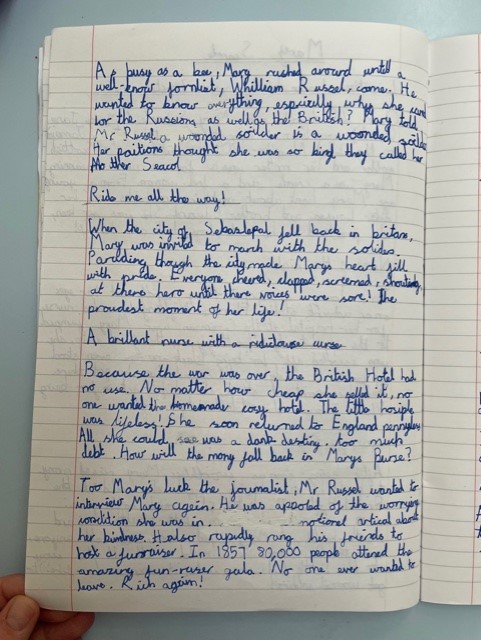 As busy as a bee, Mary rushed around until a
well-know jornlist, Whilliam Russel, came. He
wanted to know everything, espricially, why she cared
for the Russions as well as the British? Mary told
Mr Russel a woonded soilder is a woonded soilder
Her paitions thought she was so kind they called her
Mother Seacol
Ride me all the way!
When the city of Sebastapal fell back in britan,
Mary was invited to march with the soilders.
Parading though the city made Marys heart fill
with pride. Everyone cheered, clapped, screamed, shouting,
at there hero until there voices were sore! The
proudest moment of her life!
A brillant nurse with a ridiclouse curse
Because the war was over, the British Hotel had
no use. No matter how cheap she selled it, no
one wanted the homemade cosy hotel. The little hosiple
was lifeless! She soon returned to England pennyless
All she could see was a dark destiny. too much
debt. How will the mony fall back in Marys Purse?
Too Mary's luck the journalist, Mr Russel wanted to
interview Mary again. He was apooled of the worrying
condition she was in. notional artical about
her kindness. He also rapidly rang his friends to
host a funraiser. In 1857 80,000 people attened the
amazing fun-raiser gala. No one ever wanted to
leave. Rich again!